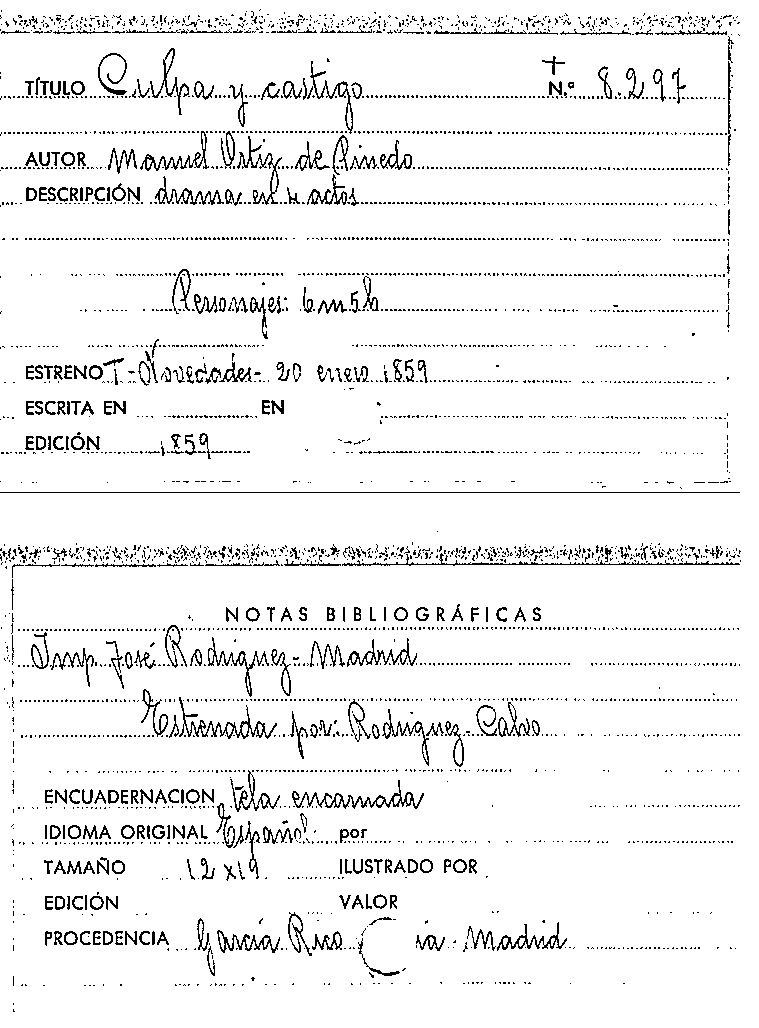 TÍTULO Culpa y castigo + N.º 8.297
AUTOR Manuel Ortiz de Pinedo
DESCRIPCIÓN drama en 4 actos
Personajes: 6m5h
ESTRENO T-Novedades- 20 enero 1859
ESCRITA EN EN
EDICIÓN 1859
NOTAS BIBLIOGRÁFICAS
Imp. José Rodriguez- Madrid
Estrenada por: Rodriguez- Calvo
ENCUADERNACION tela encarnada
IDIOMA ORIGINAL Español por
TAMAÑO 12x19 ILUSTRADO POR
EDICIÓN VALOR
PROCEDENCIA García Rico Cia - Madrid